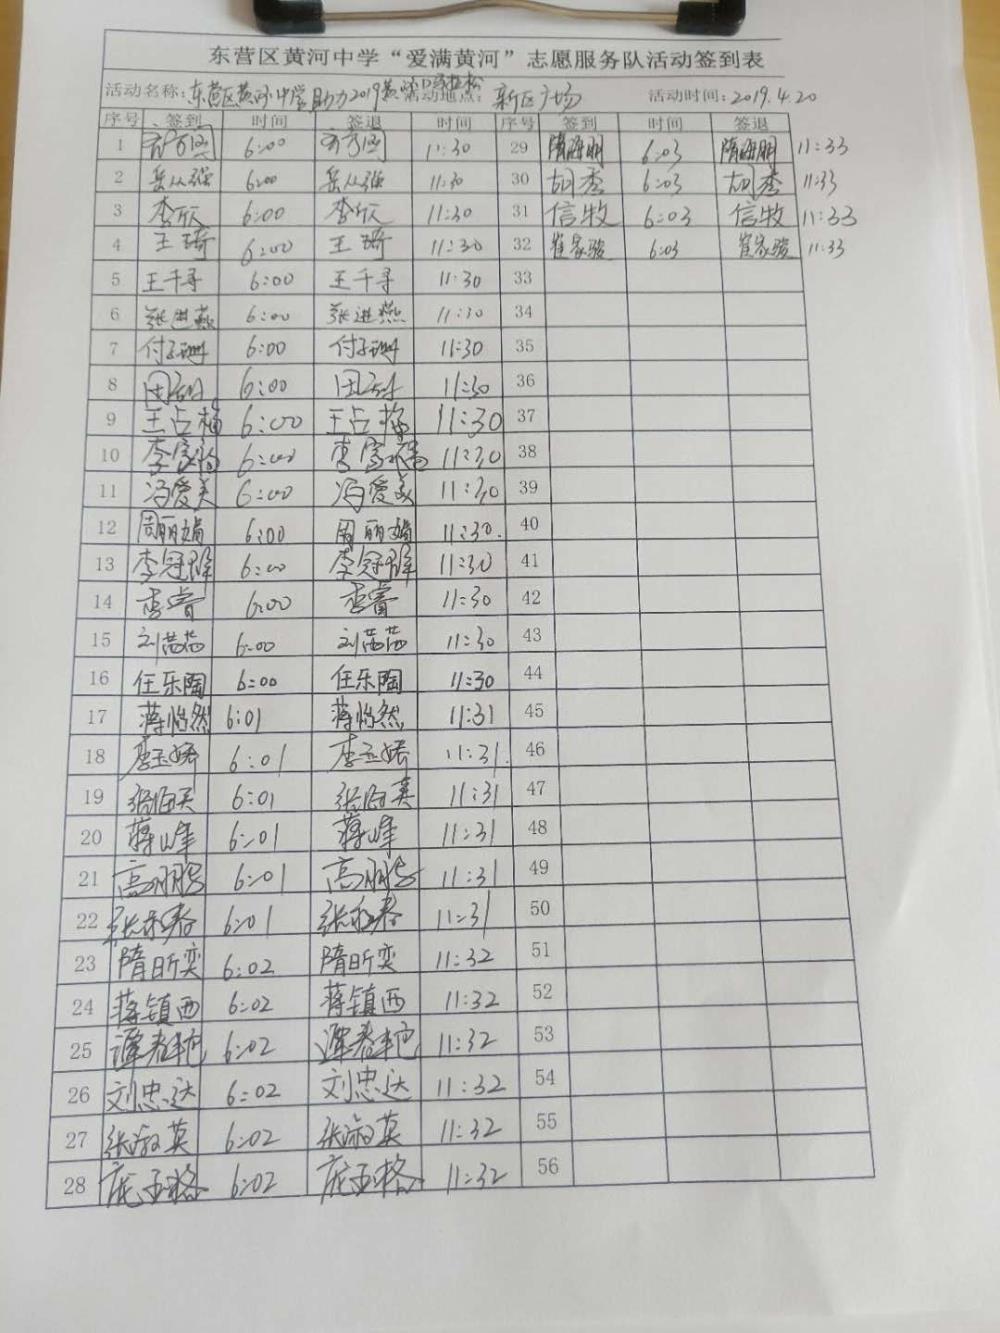 东营区黄河中学“爱满黄河”志愿服务队活动签到表
活动名称：东营区黄河中学助力2019黄河口马拉松 活动地点：新区广场 活动时间：2019.4.20
序号 签到 时间 签退 时间 序号 签到 时间 签退
1 6:00 11:30 29 隋海朋 6:03 隋海朋 11:33
2 岳从强 6:00 岳从强 11:30 30 胡秀 6:03 胡秀 11:33
3 李欣 6:00 李欣 11:30 31 信牧 6:03 信牧 11:33
4 王琦 6:00 王琦 11:30 32 崔家骏 6:03 崔家骏 11:33
5 王千寻 6:00 王千寻 11:30 33
6 张进燕 6:00 张进燕 11:30 34
7 付子珊 6:00 付子珊 11:30 35
8 6:00 11:30 36
9 王占梅 6:00 王占梅 11:30 37
10 李家福 6:00 李家福 11:30 38
11 冯爱美 6:00 冯爱美 11:30 39
12 周丽娟 6:00 周丽娟 11:30. 40
13 李冠群 6:00 李冠群 11:30 41
14 李睿 6:00 李睿 11:30 42
15 刘茜茜 6:00 刘茜茜 11:30 43
16 任乐陶 6:00 任乐陶 11:30 44
17 蒋怡然 6:01 蒋怡然 11:31 45
18 李玉娇 6:01 李玉娇 11:31. 46
19 6:01 11:31 47
20 蒋峰 6:01 蒋峰 11:31 48
21 6:01 11:31 49
22 6:01 11:31 50
23 隋昕奕 6:02 隋昕奕 11:32 51
24 蒋镇西 6:02 蒋镇西 11:32 52
25 6:02 11:32 53
26 刘忠达 6:02 刘忠达 11:32 54
27 张淑英 6:02 张淑英 11:32 55
28 庞玉格 6:02 庞玉格 11:32 56